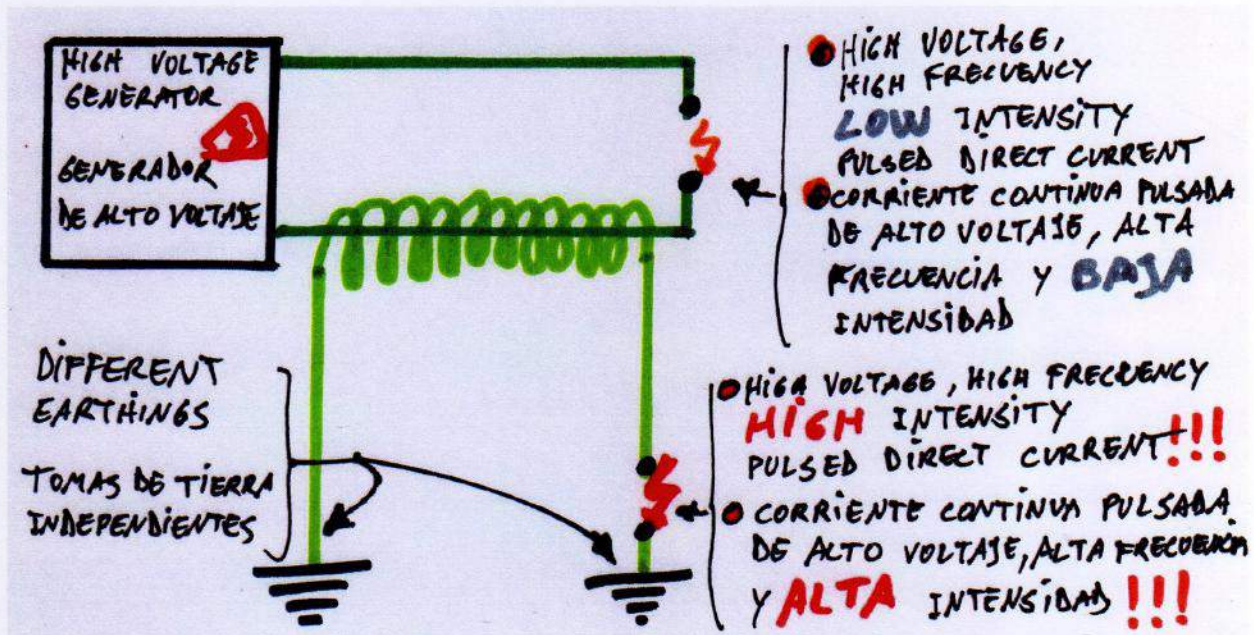 HIGH VOLTAGE
GENERATOR
GENERADOR
DE ALTO VOLTAJE
HIGH VOLTAGE,
HIGH FRECUENCY
LOW INTENSITY
PULSED DIRECT CURRENT
CORRIENTE CONTINUA PULSADA
DE ALTO VOLTAJE, ALTA
FRECUENCIA Y BAJA
INTENSIDAD
DIFFERENT
EARTHINGS
TOMAS DE TIERRA
INDEPENDIENTES
HIGH VOLTAGE, HIGH FRECUENCY
HIGH INTENSITY
PULSED DIRECT CURRENT!!!
CORRIENTE CONTINUA PULSADA
DE ALTO VOLTAJE, ALTA FRECUENCIA
Y ALTA INTENSIDAD!!!